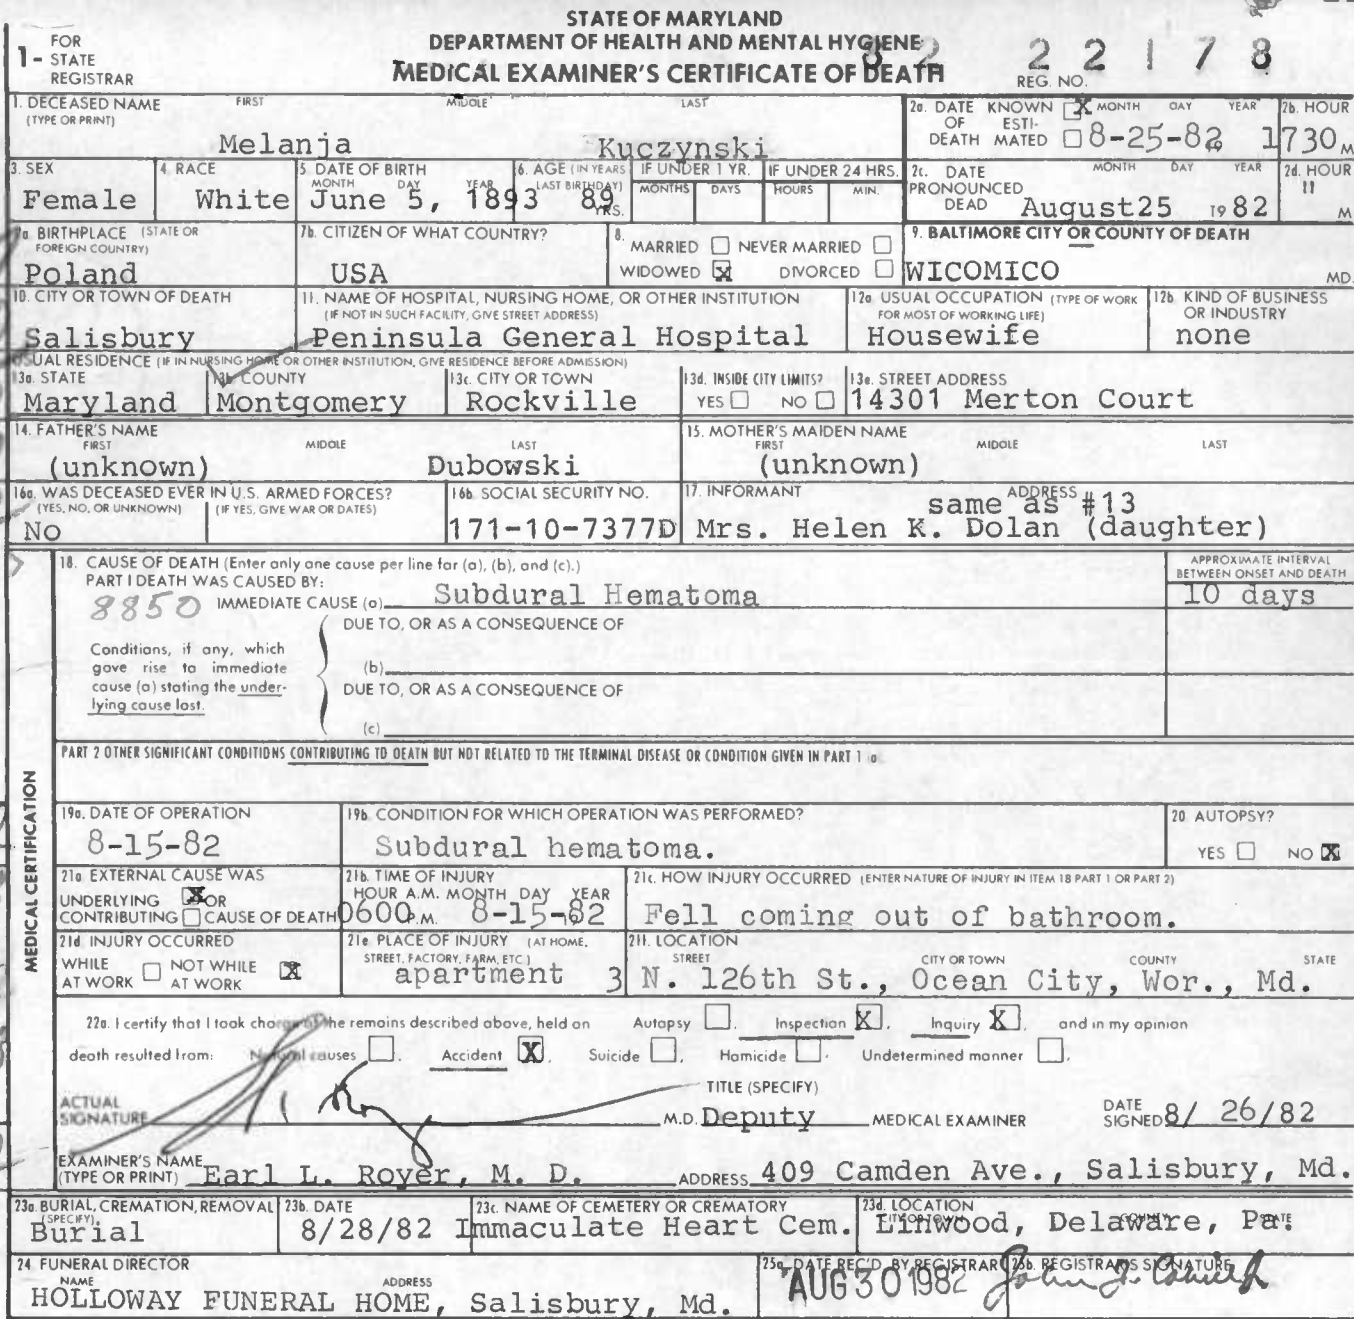 STATE OF MARYLAND
DEPARTMENT OF HEALTH AND MENTAL HYGIENE
MEDICAL EXAMINER'S CERTIFICATE OF DEATH
1- FOR STATE REGISTRAR
82 22178
REG. NO.
1. DECEASED NAME (TYPE OR PRINT) FIRST MIDDLE LAST
Melanja Kuczynski
2a. DATE OF DEATH KNOWN X ESTIMATED MONTH DAY YEAR
8-25-82
2b. HOUR
1730 M
3. SEX
Female
4. RACE
White
5. DATE OF BIRTH MONTH DAY YEAR
June 5, 1893
6. AGE (IN YEARS LAST BIRTHDAY)
89 YRS.
IF UNDER 1 YR. MONTHS DAYS
IF UNDER 24 HRS. HOURS MIN.
2c. DATE PRONOUNCED DEAD MONTH DAY YEAR
August25 1982
2d. HOUR
" M
7a. BIRTHPLACE (STATE OR FOREIGN COUNTRY)
Poland
7b. CITIZEN OF WHAT COUNTRY?
USA
8. MARRIED NEVER MARRIED
WIDOWED X DIVORCED
9. BALTIMORE CITY OR COUNTY OF DEATH
WICOMICO MD.
10. CITY OR TOWN OF DEATH
Salisbury
11. NAME OF HOSPITAL, NURSING HOME, OR OTHER INSTITUTION
(IF NOT IN SUCH FACILITY, GIVE STREET ADDRESS)
Peninsula General Hospital
12a. USUAL OCCUPATION (TYPE OF WORK FOR MOST OF WORKING LIFE)
Housewife
12b. KIND OF BUSINESS OR INDUSTRY
none
USUAL RESIDENCE (IF IN NURSING HOME OR OTHER INSTITUTION, GIVE RESIDENCE BEFORE ADMISSION)
13a. STATE
Maryland
13b. COUNTY
Montgomery
13c. CITY OR TOWN
Rockville
13d. INSIDE CITY LIMITS?
YES NO
13e. STREET ADDRESS
14301 Merton Court
14. FATHER'S NAME FIRST MIDDLE LAST
(unknown) Dubowski
15. MOTHER'S MAIDEN NAME FIRST MIDDLE LAST
(unknown)
16a. WAS DECEASED EVER IN U.S. ARMED FORCES?
(YES, NO, OR UNKNOWN) (IF YES, GIVE WAR OR DATES)
No
16b. SOCIAL SECURITY NO.
171-10-7377D
17. INFORMANT ADDRESS
same as #13
Mrs. Helen K. Dolan (daughter)
MEDICAL CERTIFICATION
18. CAUSE OF DEATH (Enter only one cause per line for (a), (b), and (c).)
PART I DEATH WAS CAUSED BY:
APPROXIMATE INTERVAL BETWEEN ONSET AND DEATH
8850 IMMEDIATE CAUSE (a) Subdural Hematoma 10 days
DUE TO, OR AS A CONSEQUENCE OF
Conditions, if any, which gave rise to immediate cause (a) stating the underlying cause last.
(b)
DUE TO, OR AS A CONSEQUENCE OF
(c)
PART 2 OTHER SIGNIFICANT CONDITIONS CONTRIBUTING TO DEATH BUT NOT RELATED TO THE TERMINAL DISEASE OR CONDITION GIVEN IN PART 1 a
19a. DATE OF OPERATION
8-15-82
19b. CONDITION FOR WHICH OPERATION WAS PERFORMED?
Subdural hematoma.
20. AUTOPSY?
YES NO X
21a. EXTERNAL CAUSE WAS
UNDERLYING X OR
CONTRIBUTING CAUSE OF DEATH
21b. TIME OF INJURY
HOUR A.M. MONTH DAY YEAR
0600 P.M. 8-15-82
21c. HOW INJURY OCCURRED (ENTER NATURE OF INJURY IN ITEM 18 PART 1 OR PART 2)
Fell coming out of bathroom.
21d. INJURY OCCURRED
WHILE AT WORK NOT WHILE AT WORK X
21e. PLACE OF INJURY (AT HOME, STREET, FACTORY, FARM, ETC.)
apartment
21f. LOCATION STREET CITY OR TOWN COUNTY STATE
3 N. 126th St., Ocean City, Wor., Md.
22a. I certify that I took charge of the remains described above, held an Autopsy , Inspection X, Inquiry X, and in my opinion
death resulted from: Natural causes , Accident X, Suicide , Homicide , Undetermined manner .
ACTUAL SIGNATURE M.D.
TITLE (SPECIFY)
Deputy MEDICAL EXAMINER
DATE SIGNED 8/ 26/82
EXAMINER'S NAME (TYPE OR PRINT) Earl L. Royer, M. D.
ADDRESS 409 Camden Ave., Salisbury, Md.
23a. BURIAL, CREMATION, REMOVAL (SPECIFY)
Burial
23b. DATE
8/28/82
23c. NAME OF CEMETERY OR CREMATORY
Immaculate Heart Cem.
23d. LOCATION CITY OR TOWN COUNTY STATE
Linwood, Delaware, Pa.
24. FUNERAL DIRECTOR
NAME ADDRESS
HOLLOWAY FUNERAL HOME, Salisbury, Md.
25a. DATE REC'D. BY REGISTRAR
AUG 30 1982
25b. REGISTRAR'S SIGNATURE